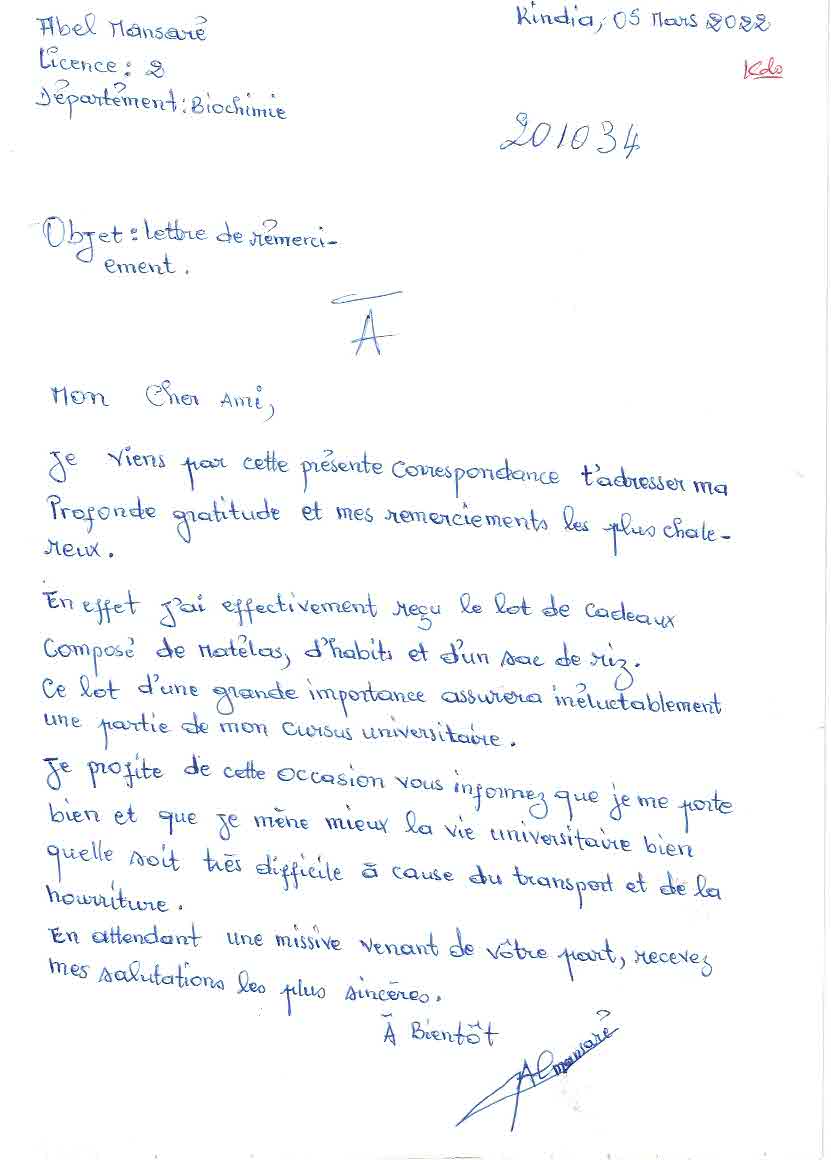 Abel Mansaré
Kindia, 05 Mars 2022
Licence : 2
Kdo
Département : Biochimie
201034
Objet : lettre de rémerci-
ement.
A
Mon Cher Ami,
Je viens par cette présente correspondance t'adresser ma
Profonde gratitude et mes remerciements les plus chale-
reux.
En effet j'ai effectivement reçu le lot de cadeaux
Composé de Matélas, d'habits et d'un sac de riz.
Ce lot d'une grande importance assurera inéluctablement
une partie de mon cursus universitaire.
Je profite de cette occasion vous informez que je me porte
bien et que je mène mieux la vie universitaire bien
quelle soit très difficile à cause du transport et de la
nourriture.
En attendant une missive venant de vôtre part, recevez
mes salutations les plus sincères.
À Bientôt
Almansaré